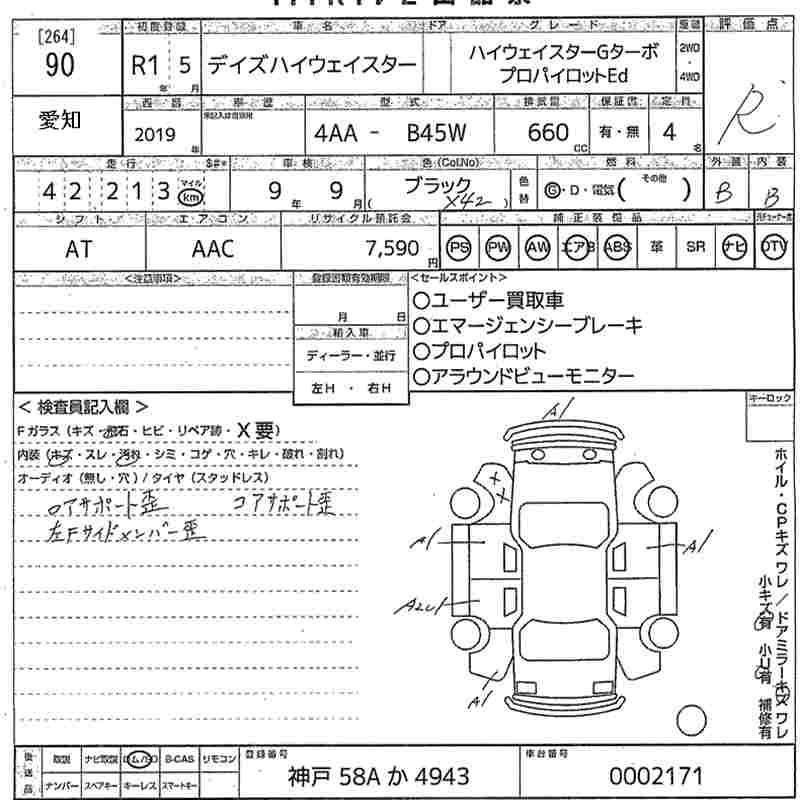 [264]
90
愛知
初度登録 車名 ドア グレード 評価点
R1年 5月 デイズハイウェイスター ハイウェイスターGターボ
プロパイロットEd
2WD・4WD
R
車歴 型式 排気量 保証書 定員
2019年 4AA - B45W 660cc 有・無 4名
走行 車検 色(Col.No) 色替 燃料 外装 内装
42213 マイル km 9年 9月 ブラック
( X42 )
Ⓖ・D・電気( その他 ) B B
シフト エアコン リサイクル預託金 純正装備品
AT AAC 7,590円 PS PW AW エアB ABS 革 SR ナビ DTV
<注意事項> 登録書類有効期限 <セールスポイント>
月 日
輸入車
ディーラー・並行
左H ・ 右H
○ユーザー買取車
○エマージェンシーブレーキ
○プロパイロット
○アラウンドビューモニター
< 検査員記入欄 >
Fガラス (キズ・飛石・ヒビ・リペア跡・X要)
内装 (キズ・スレ・汚れ・シミ・コゲ・穴・キレ・破れ・割れ)
オーディオ (無し・穴) / タイヤ (スタッドレス)
ロアサポート歪 コアサポート歪
左Fサイドメンバー歪
A1
X
X
A1
A1
A2U1
A1
キーロック
ホイル・CPキズ ワレ / ドアミラーキズ ワレ
小キズ有 小U有 補修有
後送品 取説 ナビ取説 ロムBO B-CAS リモコン
ナンバー スペアキー キーレス スマートキー
登録番号
神戸 58A か 4943
車台番号
0002171